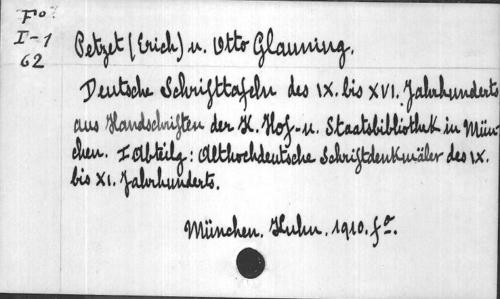 Fo
I-1
62
Petzet (Erich) u. Otto Glauning.
Deutsche Schrifttafeln des IX. bis XVI. Jahrhunderts
aus Handschriften der K. Hof- u. Staatsbibliothek in Mün-
chen. I Abteilg: Althochdeutsche Schriftdenkmäler des IX.
bis XI. Jahrhunderts.
München. Kuhn. 1910. fo.